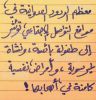 معظم الردود العدوانية في
مواقع التواصل الاجتماعي تؤشر
إلى طفولة بائسة، ونشأة
غير سوية، وأمراض نفسية
كامنة في أصحابها!